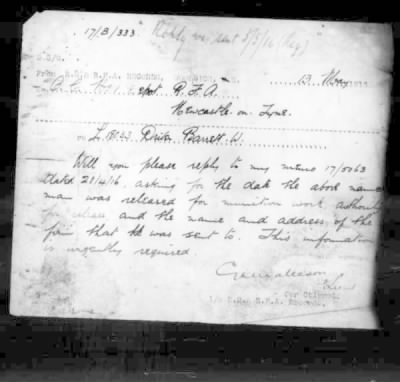 17/B/333 "Reply was sent 5/5/16 (Reg)
From R.H.& R.F.A. RECORDS,
13 May 1916
Depot R.F.A.
Newcastle on Tyne.
on L Driver Barrett W.
Will you please reply to my memo 17/
dated 21/4/16 asking for the date the above named
man was released for munition work authority
for release and the name and address of the
firm that he was sent to. This information
is urgently required
for Colonel,
i/c R.H.& R.F.A. Records.